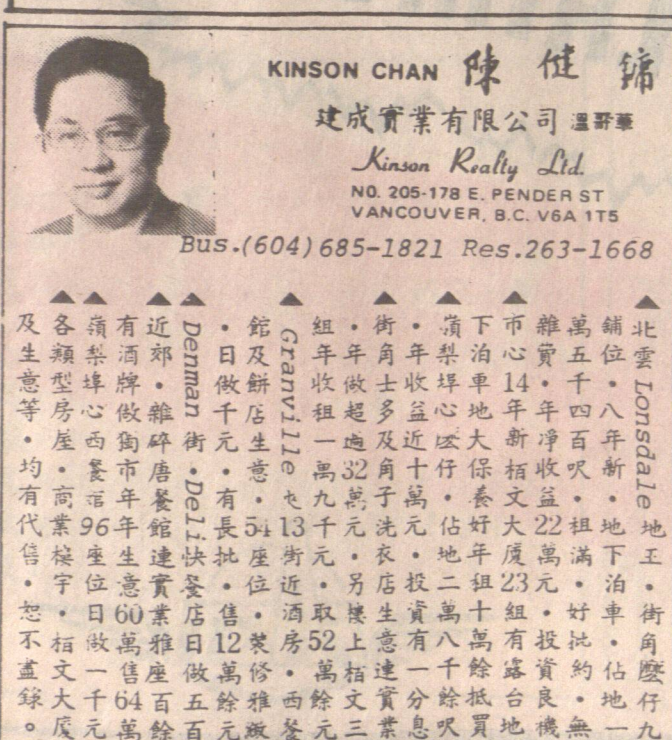 KINSON CHAN 陳健鏞
建成實業有限公司 溫哥華
Kinson Realty Ltd.
NO. 205-178 E. PENDER ST
VANCOUVER, B.C. V6A 1T5
Bus.(604)685-1821 Res.263-1668
▲北雲Lonsdale地王・街角仔九
舖位・八年新・地下泊車・佔地一
萬五千四百呎・租滿・好批約・無
雜費・年净收益22萬元・投資良機
▲市心14年新栢文大厦23組有露台地
下泊車地大保養好年租十萬餘抵買
▲嶺梨埠心仔・佔地二萬八千餘呎
・年收益近十萬元・投資有一分息
▲街角士多及角子洗衣店生意連實業
・年做超過32萬元・另樓上栢文三
組年收租一萬九千元・取52萬餘元
▲Granville 13街近酒房・西餐
館及餅店生意・54座位・裝修雅緻
・日做千元・有長批・售12萬餘元
▲Denman 街・Deli快餐店日做五百
▲近郊・雜碎唐餐館連實業雅座百餘
有酒牌做獨市年年生意60萬售64萬
▲嶺梨埠心西餐館96座位日做一千元
▲各類型房屋・商業樓宇・栢文大厦
及生意等・均有代售・恕不盡錄。